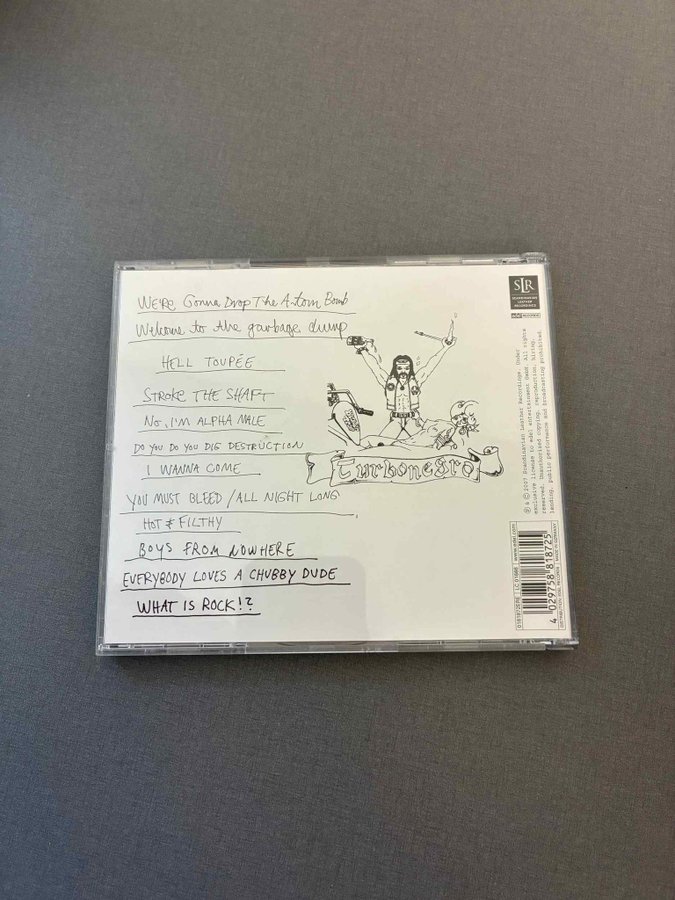 WE'RE GONNA DROP THE A-TOM BOMB
Welcome to the garbage dump
HELL TOUPÉE
STROKE THE SHAFT
NO, I'M ALPHA MALE
DO YOU DO YOU DIG DESTRUCTION
I WANNA COME
YOU MUST BLEED / ALL NIGHT LONG
HOT & FILTHY
BOYS FROM NOWHERE
EVERYBODY LOVES A CHUBBY DUDE
WHAT IS ROCK!?
Turbonegro
SLR
SCANDINAVIAN
LEATHER
RECORDINGS
edel RECORDS
℗ & © 2007 Scandinavian Leather Recordings. Under
exclusive license to edel entertainment GmbH. All rights
reserved. Unauthorised copying, reproduction, hiring,
lending, public performance and broadcasting prohibited.
www.edel.com
MADE IN GERMANY
4 029758 818725